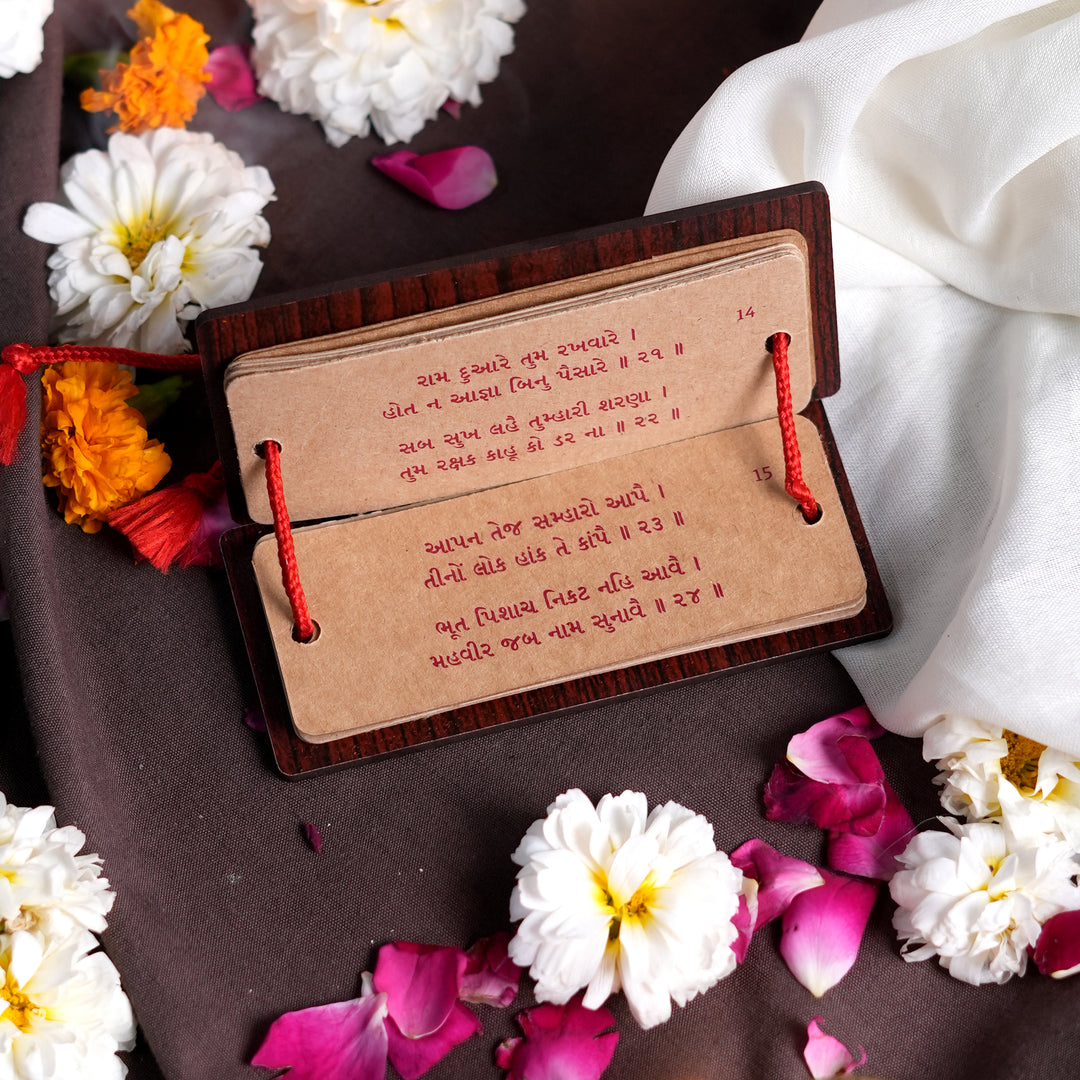 14
રામ દુઆરે તુમ રખવારે ।
હોત ન આજ્ઞા બિનુ પૈસારે ॥ ૨૧ ॥
સબ સુખ લહૈ તુમ્હારી શરણા ।
તુમ રક્ષક કાહૂ કો ડર ના ॥ ૨૨ ॥
15
આપન તેજ સમ્હારો આપૈ ।
તીનોં લોક હાંક તે કાંપૈ ॥ ૨૩ ॥
ભૂત પિશાચ નિકટ નહિ આવૈ ।
મહવીર જબ નામ સુનાવૈ ॥ ૨૪ ॥